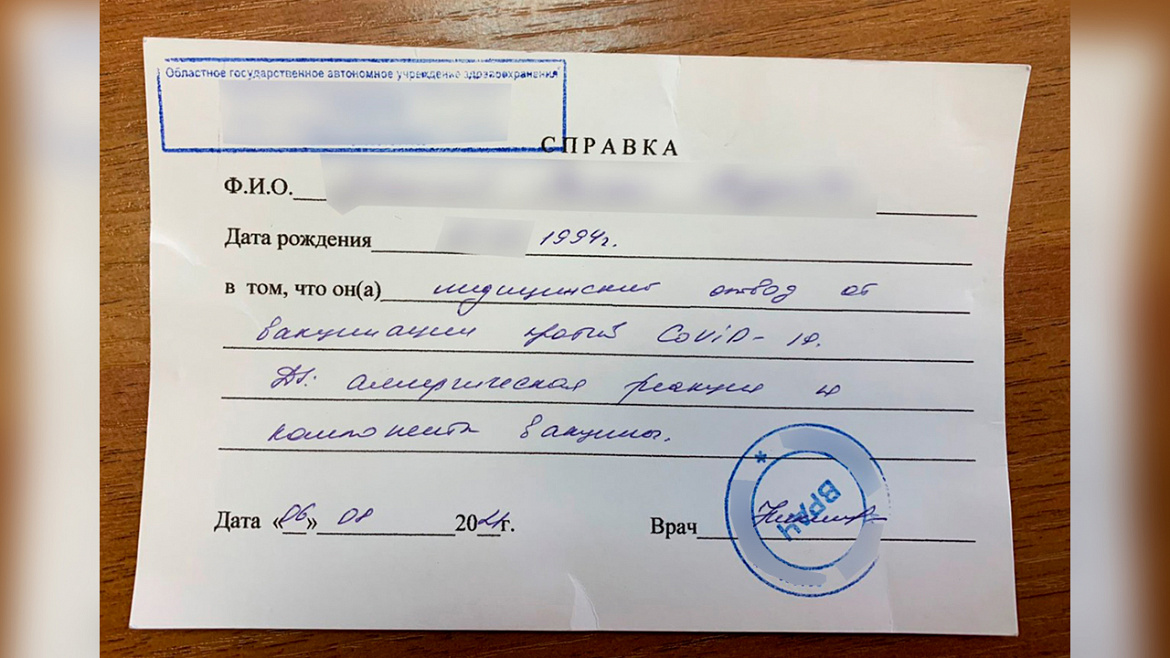 Областное государственное автономное учреждение здравоохранения
СПРАВКА
Ф.И.О.
Дата рождения 1994г.
в том, что он(а) медицинский отвод от
вакцинации против CoViD-19.
Ds: аллергическая реакция на
компоненты вакцины.
Дата «06» 08 2021г. Врач
ВРАЧ